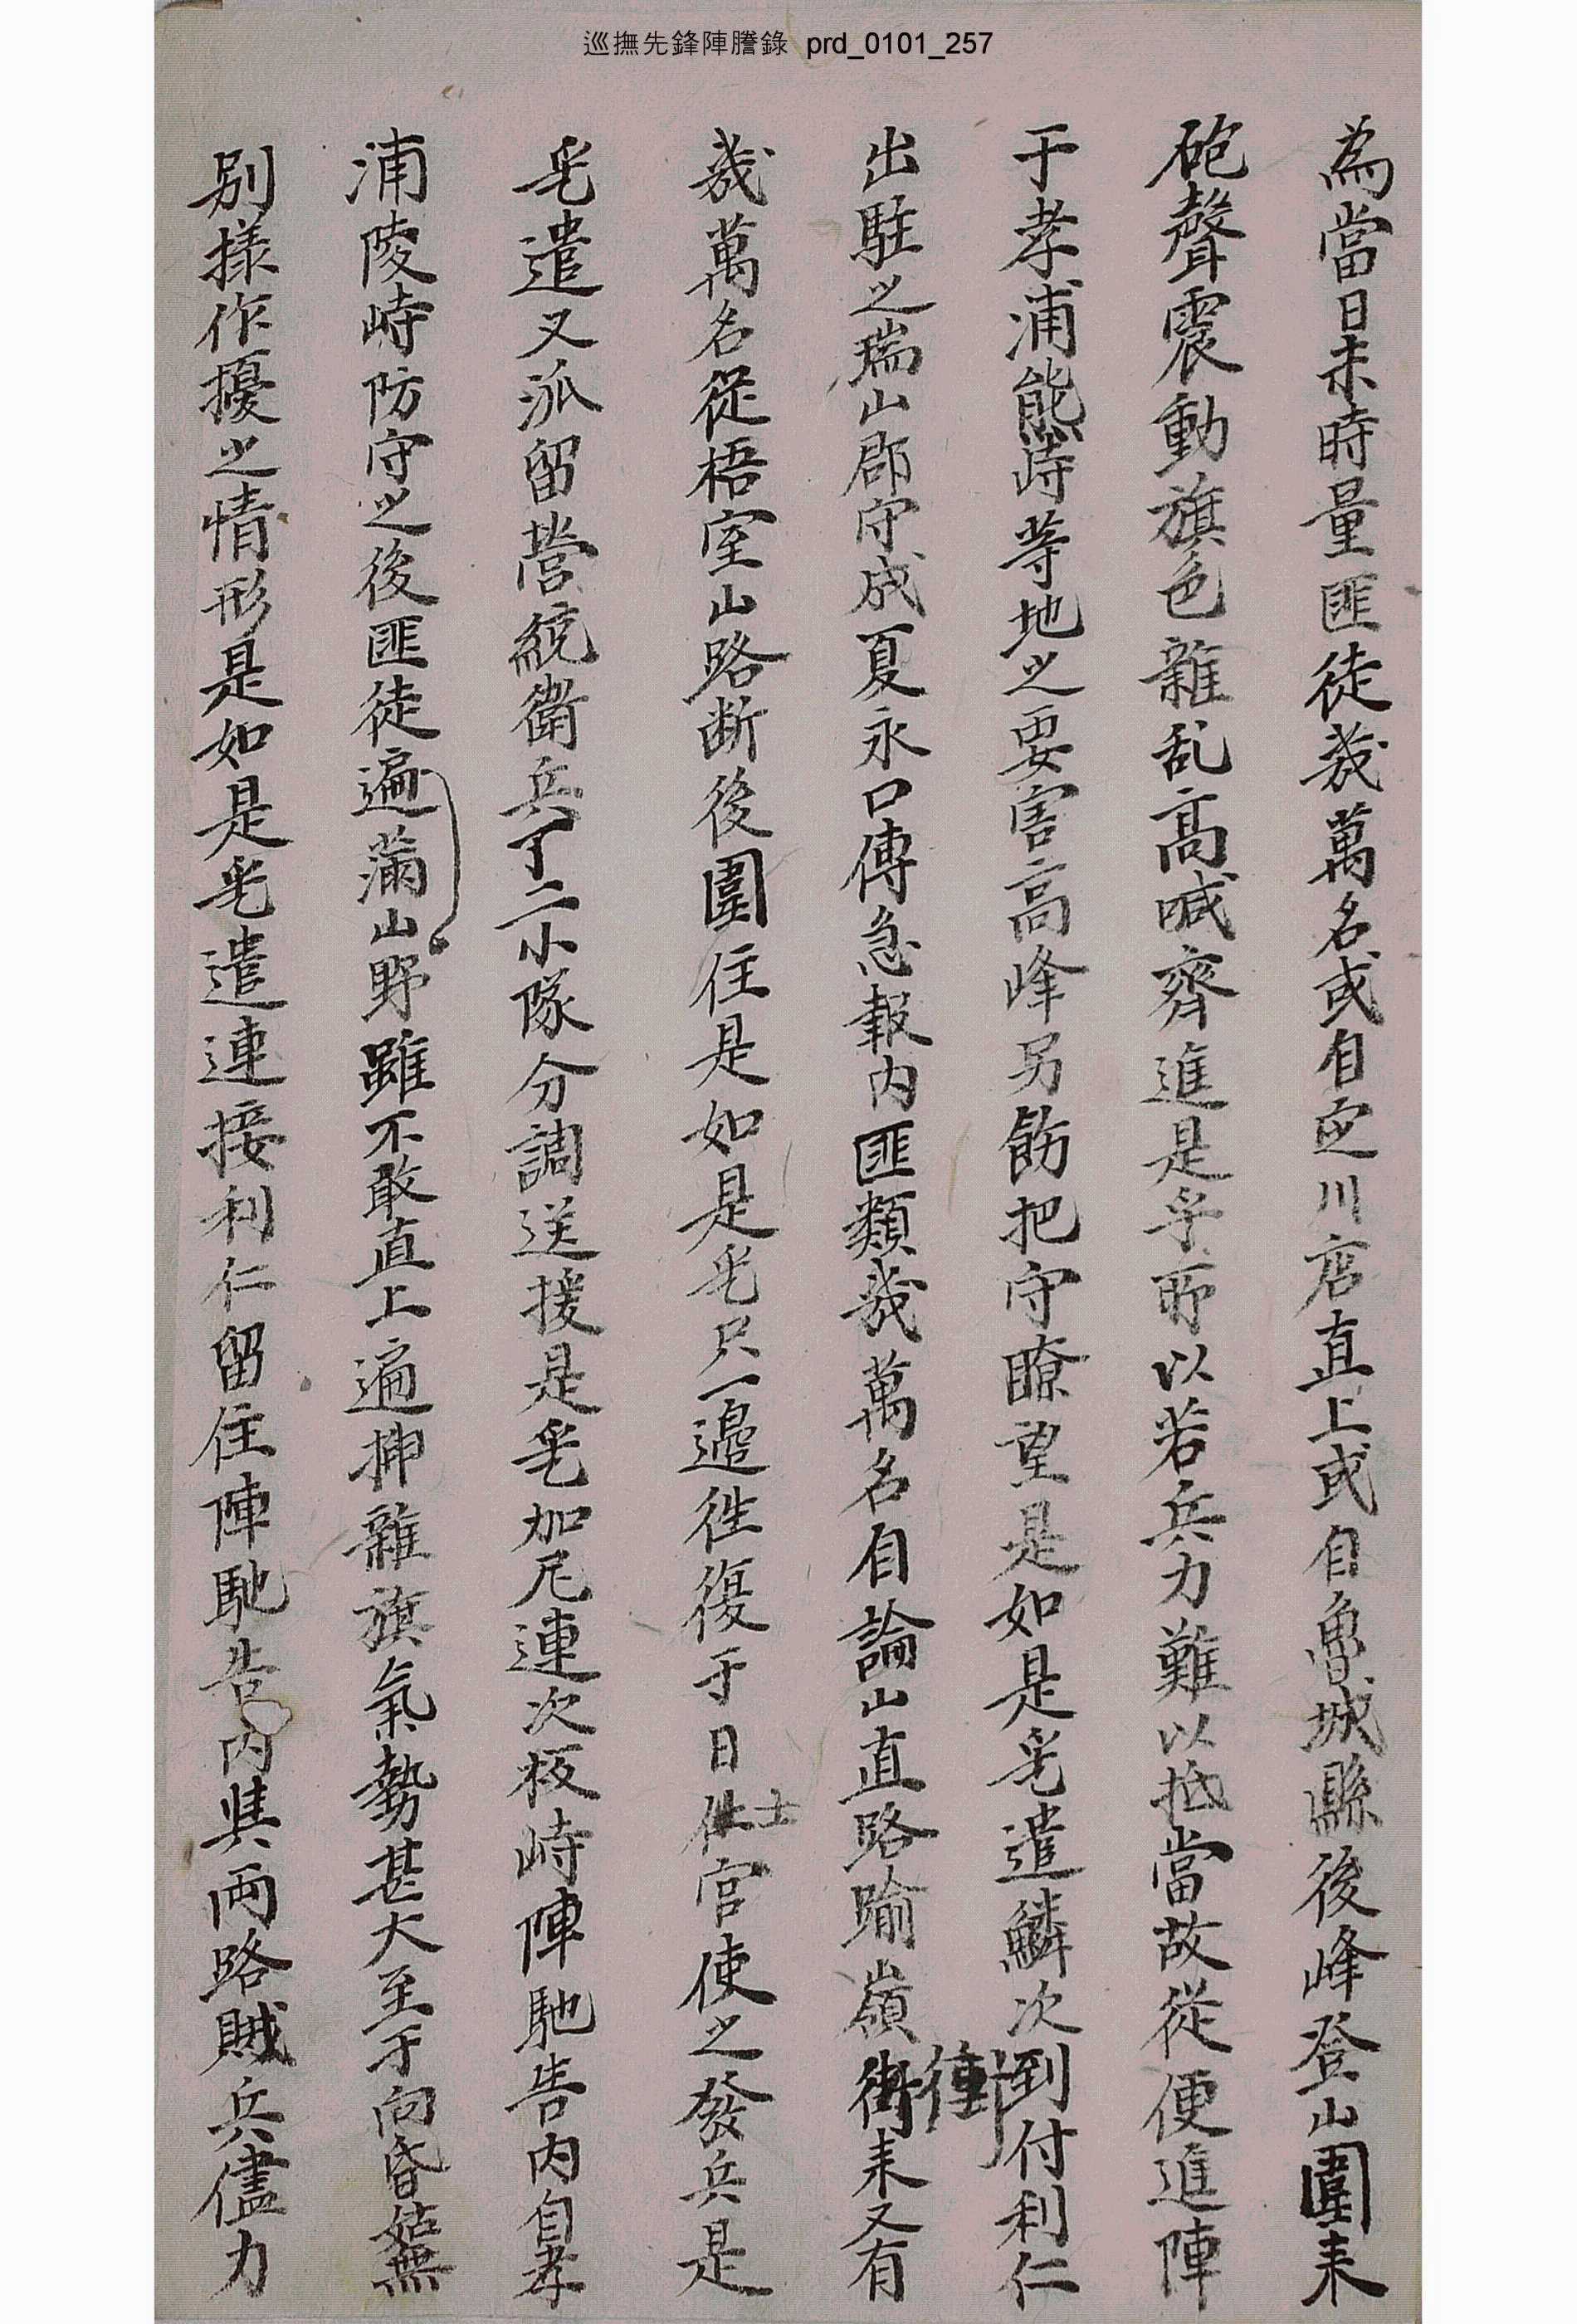 巡撫先鋒陣謄錄 prd_0101_257
為當日未時量匪徒幾萬名或自定川店直上或自魯城縣後峰登山圍來
砲聲震動旗色雜乱高喊齊進是乎所以若兵力難以抵當故從便進陣
于孝浦熊峙等地之要害高峰另飭把守瞭望是如是乎遣鱗次到付利仁
出駐之瑞山郡守成夏永口傳急報內匪類幾萬名自論山直路踰嶺衝来又有
幾萬名從梧室山路断後圍住是如是乎只一邊徃復于日士官使之發兵是
乎遣又派留營統衛兵丁二小隊分調送援是乎加尼連次板峙陣馳告內自孝
浦陵峙防守之後匪徒遍滿山野雖不敢直上遍揷雜旗氣勢甚大至于向昏姑無
別樣作擾之情形是如是乎遣連接利仁留住陣馳告內其兩路賊兵儘力